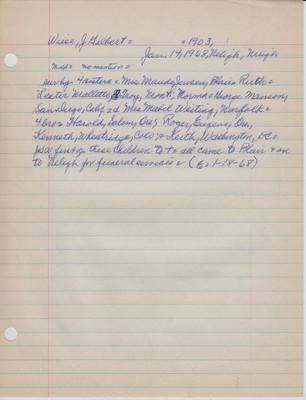 Wise, J. Gilbert = =1903, !
Jan. 14, 1968, Neligh, Neligh
no mention =
sur by = 4 sisters = Mrs Maude Jensen, Blair = Ruth =
Lester Mallette, Troy, Mont, Norma = George Manson,
San Diego, Calif = & Mrs Mabel Weiting, Norfolk =
4 bros Harold, Salem, Ore; Roger, Eugene, Ore,
Kenneth, Wheatridge, Colo; & Keith, Washington, DC =
three children & all came to Blair & on
to Neligh for funeral services = (E = 1-18-68)